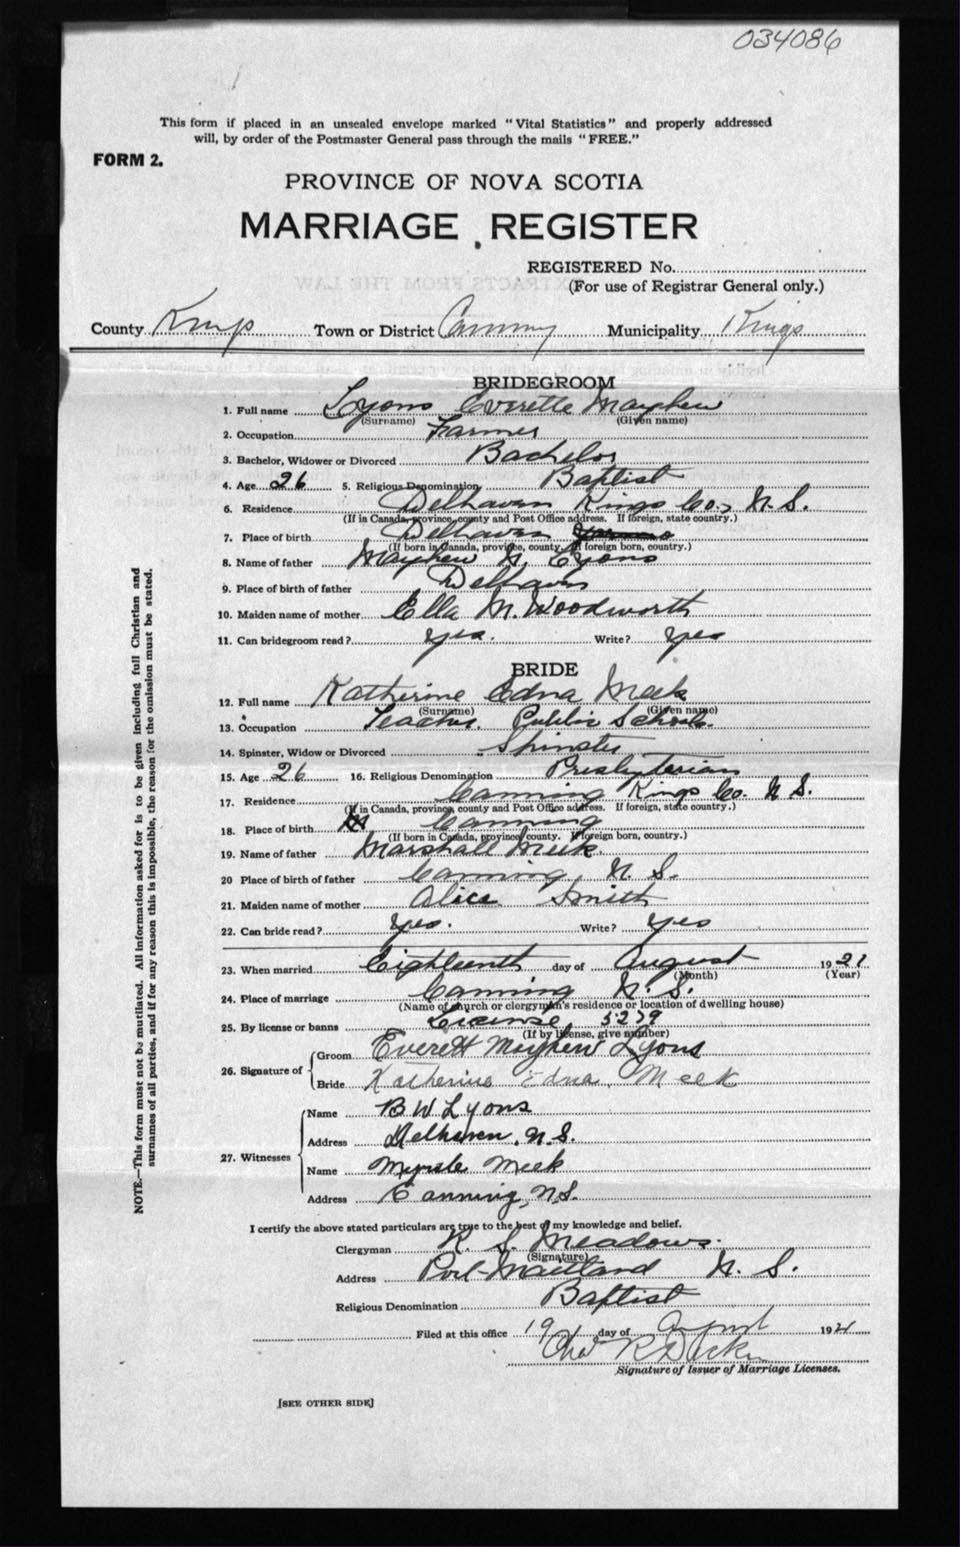 034086
This form if placed in an unsealed envelope marked "Vital Statistics" and properly addressed
will, by order of the Postmaster General pass through the mails "FREE."
FORM 2.
PROVINCE OF NOVA SCOTIA
MARRIAGE REGISTER
REGISTERED No.
(For use of Registrar General only.)
County Kings Town or District Canning Municipality Kings
BRIDEGROOM
1. Full name Lyons Everette Mayhew
(Surname) (Given name)
2. Occupation Farmer
3. Bachelor, Widower or Divorced Bachelor
4. Age 26 5. Religious Denomination Baptist
6. Residence Delhaven Kings Co., N. S.
(If in Canada, province, county and Post Office address. If foreign, state country.)
7. Place of birth Delhaven
(If born in Canada, province, county. If foreign born, country.)
8. Name of father Mayhew N. Lyons
9. Place of birth of father Delhaven
10. Maiden name of mother Ella M. Woodworth
11. Can bridegroom read? yes. Write? yes
BRIDE
12. Full name Katherine Edna Meek
(Surname) (Given name)
13. Occupation Teacher. Public Schools.
14. Spinster, Widow or Divorced Spinster
15. Age 26 16. Religious Denomination Presbyterian
17. Residence Canning Kings Co. N. S.
(If in Canada, province, county and Post Office address. If foreign, state country.)
18. Place of birth Canning
(If born in Canada, province, county. If foreign born, country.)
19. Name of father Marshall Meek
20 Place of birth of father Canning N. S.
21. Maiden name of mother Alice Smith
22. Can bride read? yes. Write? yes
23. When married Eighteenth day of August 1921
(Month) (Year)
24. Place of marriage Canning N. S.
(Name of church or clergyman's residence or location of dwelling house)
25. By license or banns License 5279
(If by license, give number)
26. Signature of Groom Everett Mayhew Lyons
Bride Katherine Edna Meek
27. Witnesses Name B W Lyons
Address Delhaven, N.S.
Name Myrtle Meek
Address Canning, N.S.
I certify the above stated particulars are true to the best of my knowledge and belief.
Clergyman R. S. Meadows.
(Signature)
Address Port Maitland N. S.
Religious Denomination Baptist
Filed at this office 19 day of August 1921
Chas R
Signature of Issuer of Marriage Licenses.
[SEE OTHER SIDE]
NOTE.—This form must not be mutilated. All information asked for is to be given including full Christian and
surnames of all parties, and if for any reason this is impossible, the reason for the omission must be stated.